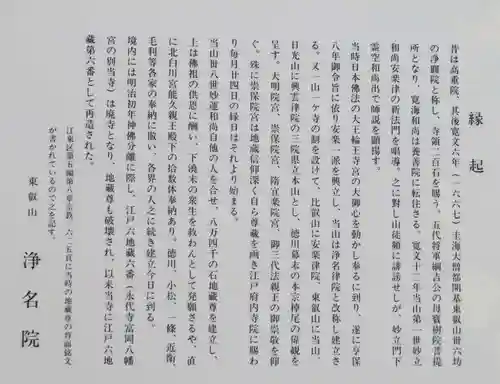 縁起
昔は高重院、其後寛文六年（一六六七）圭海大僧都開基東叡山卅六坊
の浄圓院と称し、寺領二百石を賜う。五代将軍綱吉公の母寶樹院菩提
所となり、寛海和尚は養善院に転住さる。寛文十二年当山第一世妙立
和尚安楽の新法門を唱導。之に対し山徒頻に誹謗せしが、妙立門下
霊空和尚出で師説を顕揚す。
当時日本佛法の大王輪王寺宮の大御心を動かし奉るに到り、遂に享保
八年御令旨に依り安楽一派を興立し、当山は浄名律院と改称し建立さ
る。又一山一ケ寺の制を設けて、比叡山に安楽律院、東叡山に当山、
日光山に興雲律院の三院鼎立本山とし、徳川幕末の本宗棹尾の偉観を
呈す。大明院宮、崇保院宮、隋宜楽院宮、御三代法親王の御崇敬を仰
ぐ。殊に崇保院宮は地蔵信仰深く自ら尊蔵を画き江戸府内寺院に賜わ
り毎月廿四日の縁日はそれより始まる。
当山卅八世妙運和尚自他の人を合せ、八万四千の石地蔵尊を建立し、
上は佛祖の供恩に酬い、下澆末の衆生を救わんとして発願さるや、直
に北白川宮能久親王殿下の拾数体奉納あり。徳川、小松、一條、近衛、
毛利等各家の奉納に倣い、各界の人之に続き建立今日に到る。
境内には明治初年神佛分離に際し、江戸六地蔵六番（永代寺富岡八幡
宮の別当寺）は廃寺となり、地蔵尊も破壊され、以来当寺に江戸六地
蔵第六番として再造された。
江東区蔵五編第八章宗教、六二五頁に当時の地蔵尊の背面銘文
が書かれているので之を記す。
東叡山 浄名院